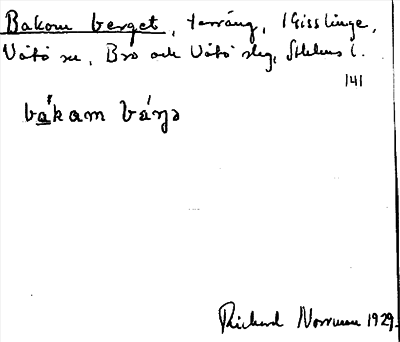 Bakom berget, terräng, 1 Gisslinge,
Vätö sn, Bro och Vätö slg, Sthlms l.
141
bákam bárjə
Richard Norrman 1929.